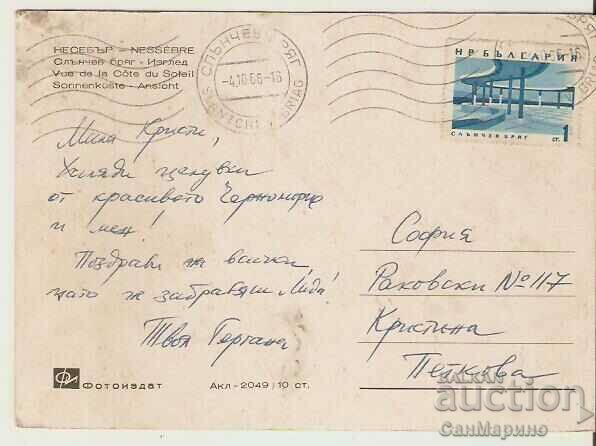 НЕСЕБЪР – NESSÈBRE
Слънчев бряг - Изглед
Vue de la Côte du Soleil
Sonnenküste - Ansicht
СЛЪНЧЕВ БРЯГ
-4.10.66-16
НР БЪЛГАРИЯ
СЛЪНЧЕВ БРЯГ
1
ст.
Мила Кристи,
Хиляди целувки
от красивото Черноморие
и мен!
Поздрави на всички,
като не забравяш Лида!
Твоя Гергана
София
Раковски № 117
Кристина
Петкова
Фотоиздат
Акл-2049/10 ст.
BALKAN
auction
СанМарино